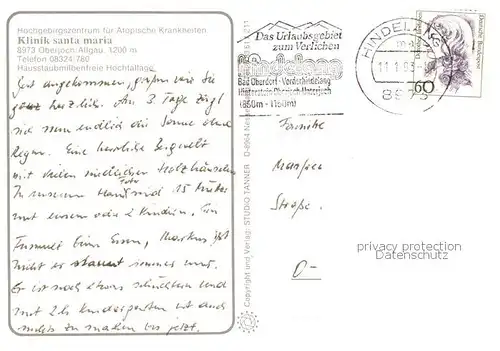 Hochgebirgszentrum für Atopische Krankheiten
Klinik santa maria
8973 Oberjoch/Allgäu, 1200 m
Telefon 08324/780
Hausstaubmilbenfreie Hochtallage
Gut angekommen, grüßen wir Sie
ganz herzlich. Am 3. Tage zeigt
sich nun endlich die Sonne ohne
Regen. Eine herrliche Bergwelt
mit vielen niedlichen Holzhäuschen.
In unserem Haus (Foto) sind 15 Mütter
mit einem oder 2 Kindern. Ein
beim Essen, Markus ißt
nicht er staunt immer nur.
Er ist noch etwas schüchtern und
mit d. Kindergarten ist auch
nichts zu machen bis jetzt.
Copyright und Verlag: STUDIO TANNER
Das Urlaubsgebiet
zum Verlieben
Bad Oberdorf - Vorderhindelang
Hinterstein Oberjoch Unterjoch
(850m - 1150m)
HINDELANG
8973
Deutsche Bundespost
60
Familie
Straße.
O-
privacy protection
www.oldthing.com